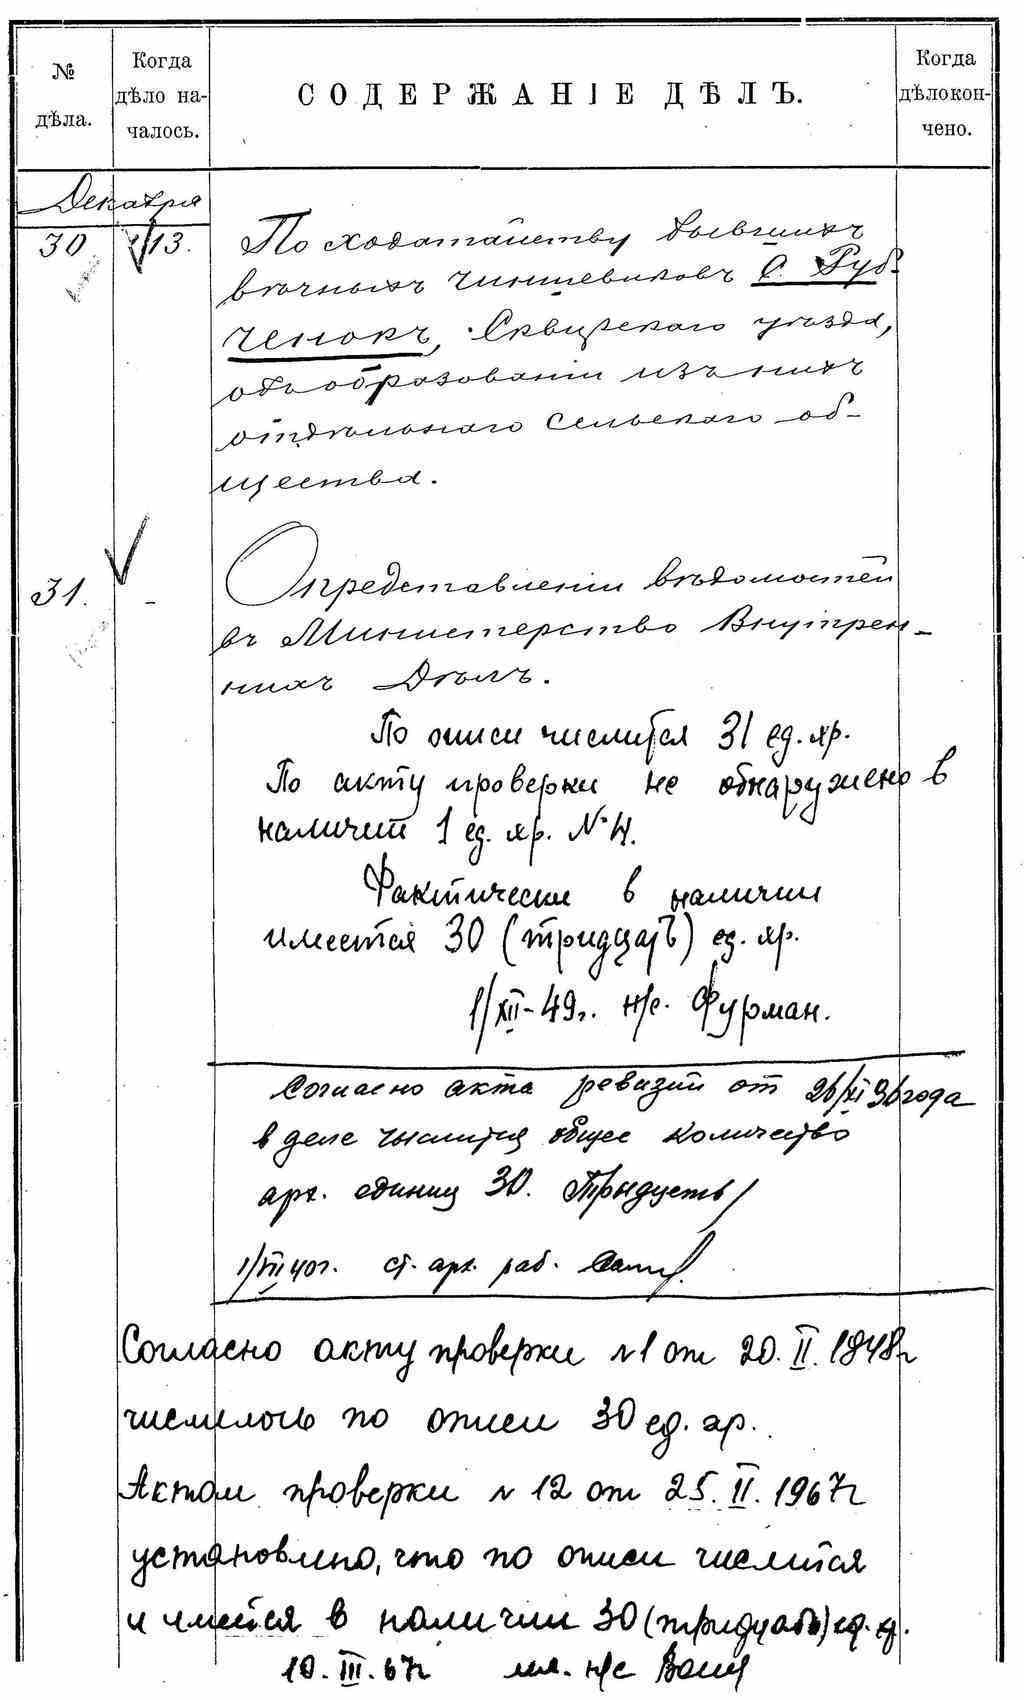 № дѣла.
Когда дѣло на-
чалось.
СОДЕРЖАНІЕ ДѢЛЪ.
Когда дѣлокон-
чено.
Декабря
30
13.
По ходатайству бывшихъ
вѣчныхъ чиншевиковъ с. Руб-
ченокъ, Сквирскаго уѣзда,
объ образованіи изъ нихъ
отдѣльнаго сельскаго об-
щества.
31.
-
О представленіи вѣдомостей
въ Министерство Внутрен-
нихъ Дѣлъ.
По описи числится 31 ед. хр.
По акту проверки не обнаружено в
наличии 1 ед. хр. №4.
Фактически в наличии
имеется 30 (тридцать) ед. хр.
1/XII-49г. н/с. Фурман.
Согласно акта ревизии от 26/XI 36 года
в деле числится общее количество
арх. единиц 30. Тридцать/
1/VII 40г. ст. арх. раб.
Согласно акту проверки №1 от 20.II.1948г
числилось по описи 30 ед. хр.
Актом проверки №12 от 25.II.1967г
установлено, что по описи числится
и имеется в наличии 30 (тридцать) ед. хр.
10.III.67г мл. н/с